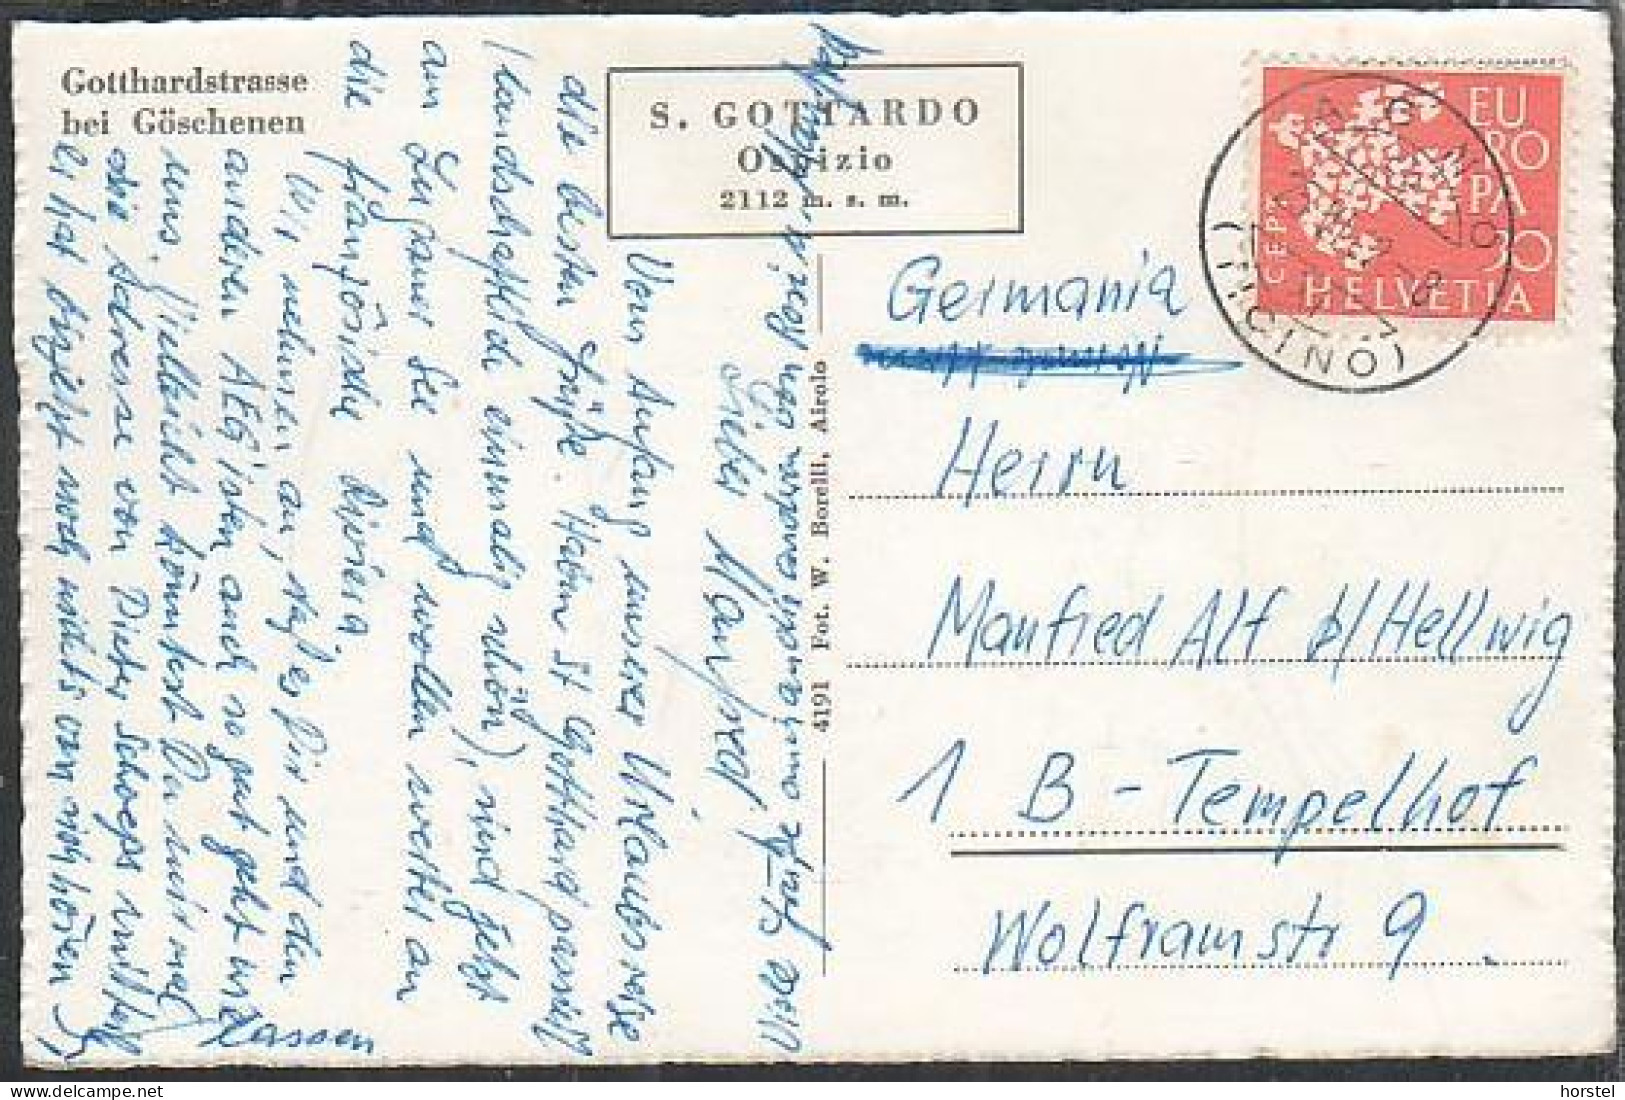 Gotthardstrasse
bei Göschenen
S. GOTTARDO
Ospizio
2112 m. s. m.
EU
RO
PA
50
CEPT
HELVETIA
(TICINO)
4191 Fot. W. Borelli, Airolo
Germania
Herrn
Manfred Alf b/Hellwig
1 B - Tempelhof
Wolframstr 9.
Lieber Manfred
Vom Anfang unserer Urlaubsreise
die besten Grüße. Haben St Gotthard passiert
(landschaftlich einmalig schön), sind jetzt
am Luganer See und wollen weiter an
die französische Riviera.
Wir nehmen an, daß es Dir und den
anderen AEG'isten auch so gut geht wie
uns. Vielleicht könntest Du mir mal
die Adresse von Dieter mitteilen,
er hat jetzt noch nichts von sich hören
lassen
Viele Grüße auch von